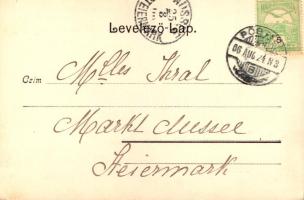 Levelező-Lap.
Czim
Mlles Kral
Markt Aussee
Steiermark
06 AUG 24 N 3